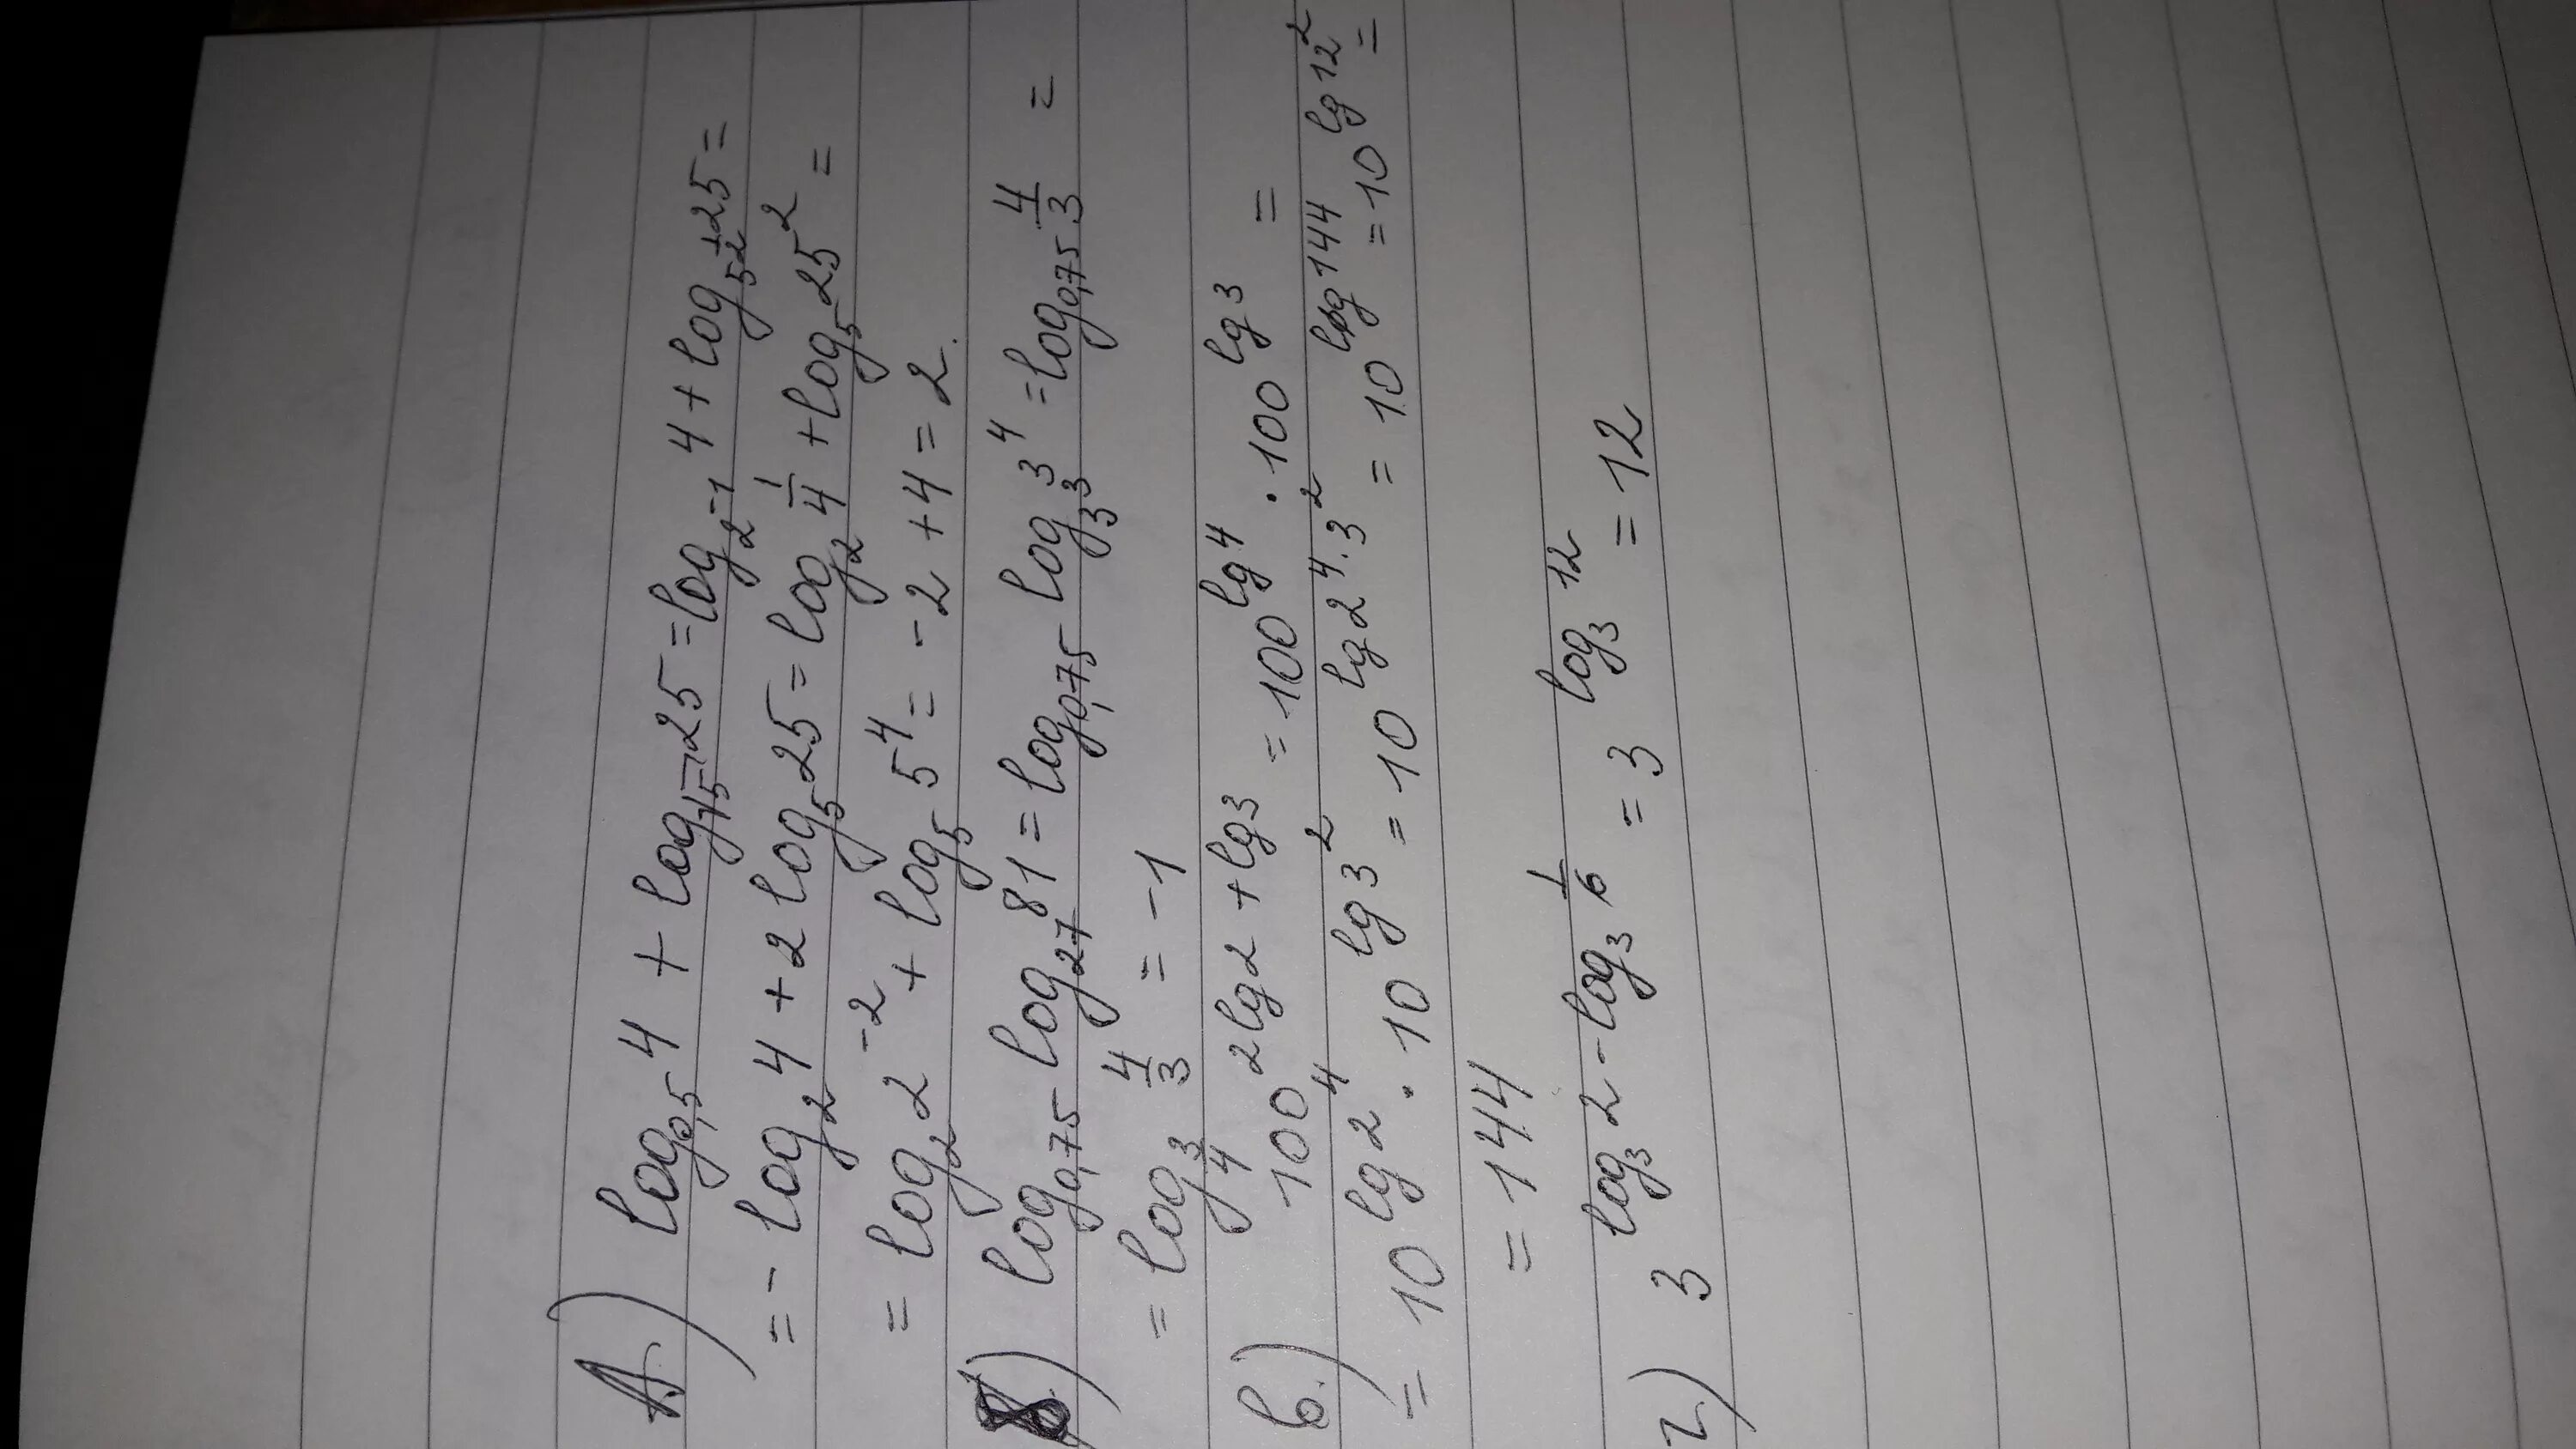 А) log₀,₅ 4 + log_√5 25 = log₂₋₁ 4 + log_5^(1/2) 25 =
= - log₂ 4 + 2 log₅ 25 = log₂ 1/4 + log₅ 25² =
= log₂ 2⁻² + log₅ 5⁴ = -2 + 4 = 2.
) log₀,₇₅ log₂₇ 81 = log₀,₇₅ log_3³ 3⁴ = log₀,₇₅ 4/3 =
= log_3/4 4/3 = -1
в.) 100^(2lg2 + lg3) = 100^lg4 · 100^lg3 =
= 10^lg2⁴ · 10^lg3² = 10^lg2⁴·3² = 10^lg144 = 10^lg12² =
= 144
г) 3^(log₃2 - log₃ 1/6) = 3^log₃12 = 12